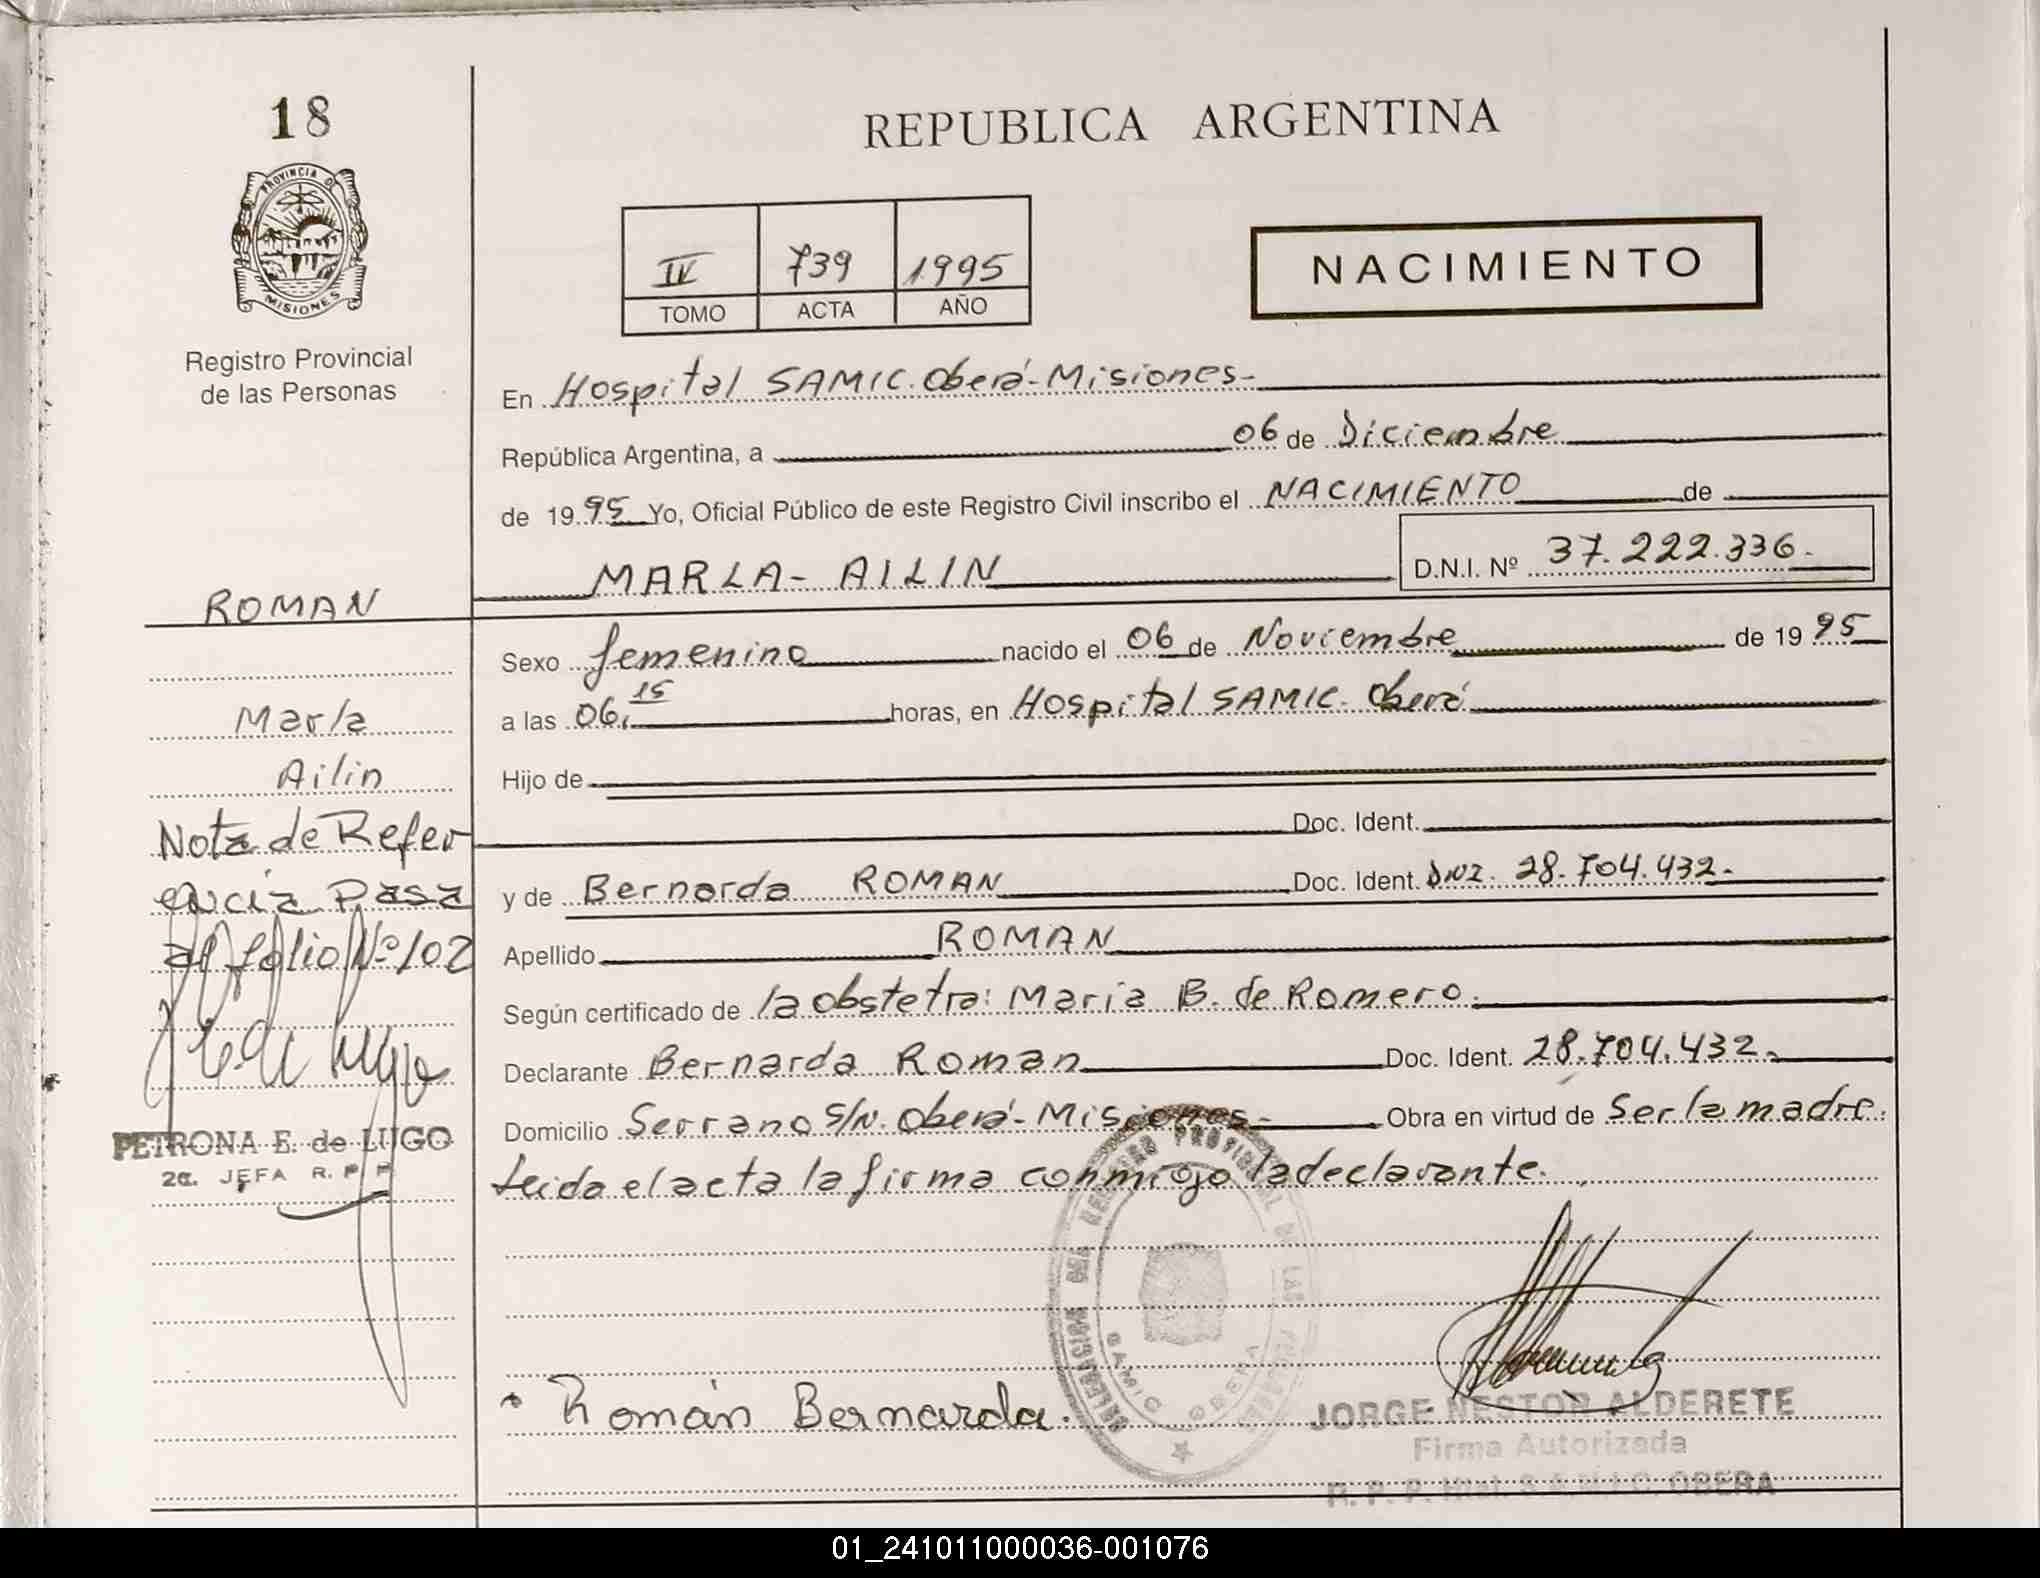 18
PROVINCIA DE
MISIONES
Registro Provincial
de las Personas
ROMAN
Marla
Ailin
Nota de Refer
encia Pasa
al folio Nº 102
PETRONA E. de LUGO
2a. JEFA R. P. P.
REPUBLICA ARGENTINA
IV 739 1995
TOMO ACTA AÑO
NACIMIENTO
En Hospital SAMIC. Oberá-Misiones-
República Argentina, a 06 de Diciembre
de 1995 Yo, Oficial Público de este Registro Civil inscribo el NACIMIENTO de
MARLA- AILIN D.N.I. Nº 37.222.336.
Sexo femenino nacido el 06 de Noviembre de 1995
a las 06,15 horas, en Hospital SAMIC. Oberá
Hijo de
Doc. Ident.
y de Bernarda ROMAN Doc. Ident. 28.704.432.
Apellido ROMAN
Según certificado de la obstetra: María B. de Romero.
Declarante Bernarda Roman Doc. Ident. 28.704.432.
Domicilio Serrano S/N. Oberá-Misiones- Obra en virtud de Ser la madre.
Leida el acta la firma conmigo la declarante.
DELEGACION DEL REGISTRO PROVINCIAL DE LAS PERSONAS
SAMIC OBERA
Román Bernarda.
JORGE NESTOR ALDERETE
Firma Autorizada
R. P. P. Htal. S.A.M.I.C. OBERA
01_241011000036-001076